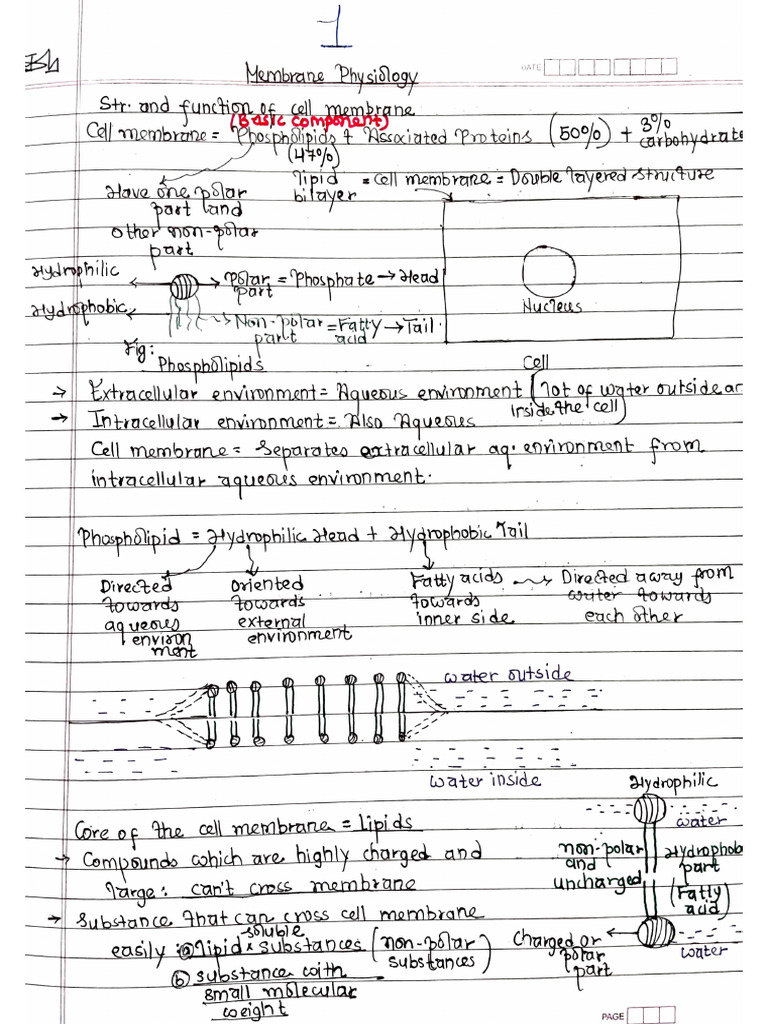 1
DATE
Membrane Physiology
Str. and function of cell membrane
(Basic component)
Cell membrane = Phospholipids + Associated Proteins (50%) + 3% carbohydrate
(47%)
Have one polar part and
other non-polar part
lipid bilayer = Cell membrane = Double layered structure
Hydrophilic
Polar part = Phosphate → Head
Hydrophobic
Non-polar part = Fatty acid → Tail.
Nucleus
Fig: Phospholipids
Cell
→ Extracellular environment = Aqueous environment (lot of water outside an
inside the cell)
→ Intracellular environment = Also Aqueous
Cell membrane = Separates extracellular aq. environment from
intracellular aqueous environment.
Phospholipid = Hydrophilic Head + Hydrophobic Tail
Directed towards aqueous environment
Oriented towards external environment
Fatty acids towards inner side
Directed away from water towards each other
water outside
water inside
Hydrophilic
water
Core of the cell membrane = Lipids
non-polar and uncharged
Hydrophob part (Fatty acid)
→ Compounds which are highly charged and
large: can't cross membrane
→ Substance that can cross cell membrane
easily : ⓐ lipid soluble substances (non-polar substances)
Charged or polar part
water
ⓑ substance with
small molecular
weight
PAGE